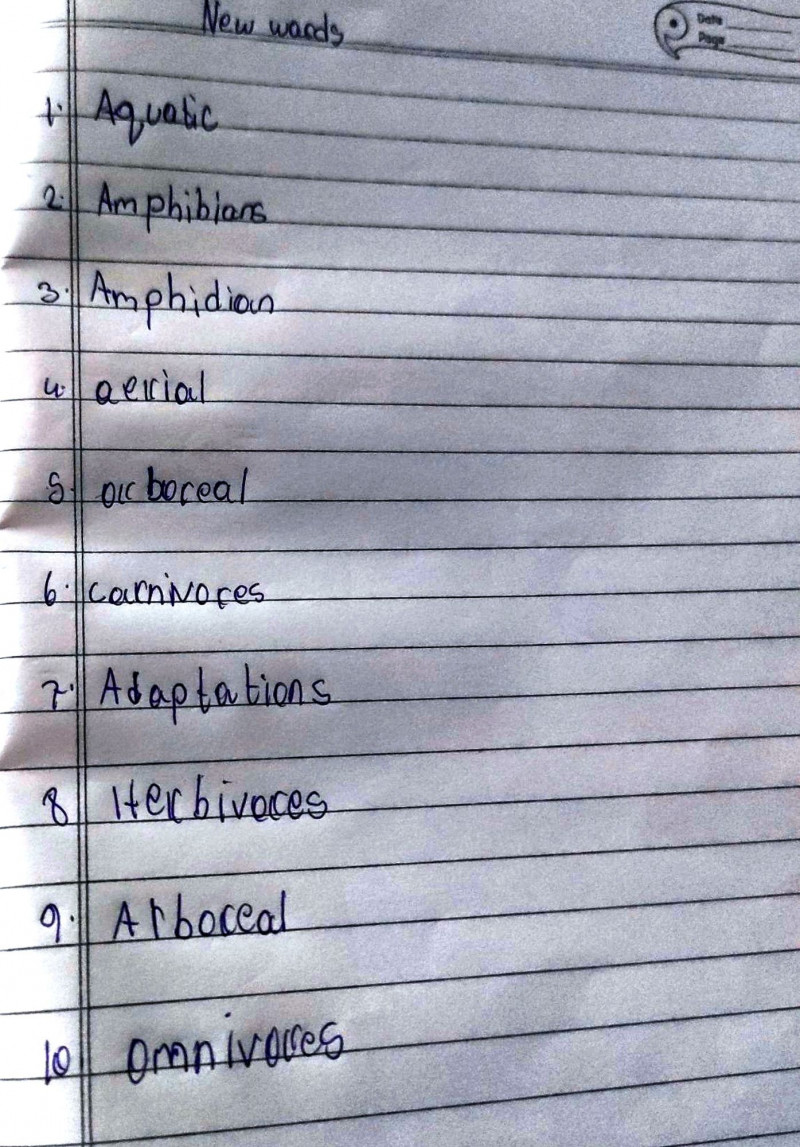 New words
Date
Page
1. Aquatic
2. Amphibians
3. Amphidian
4. aerial
5. arboreal
6. carnivores
7. Adaptations
8 Herbivores
9. Arboreal
10 omnivores